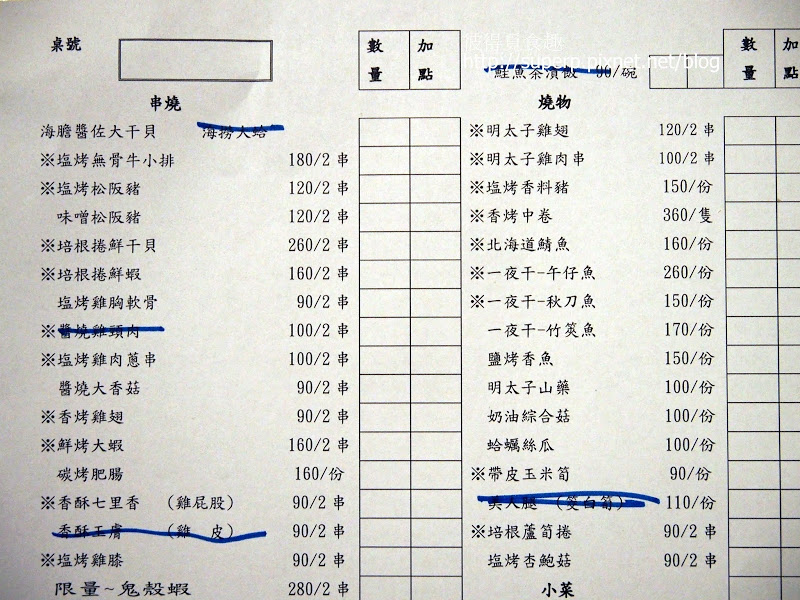 桌號
數量 加點
彼得貝食趣
http://superp.pixnet.net/blog
鮭魚茶漬飯 90/碗
數量 加點
串燒
海膽醬佐大干貝 海撈大蛤
※塩烤無骨牛小排 180/2 串
※塩烤松阪豬 120/2 串
味噌松阪豬 120/2 串
※培根捲鮮干貝 260/2 串
※培根捲鮮蝦 160/2 串
塩烤雞胸軟骨 90/2 串
※醬燒雞頸肉 100/2 串
※塩烤雞肉蔥串 100/2 串
醬燒大香菇 90/2 串
※香烤雞翅 90/2 串
※鮮烤大蝦 160/2 串
碳烤肥腸 160/份
※香酥七里香 (雞屁股) 90/2 串
香酥玉膚 (雞 皮) 90/2 串
※塩烤雞膝 90/2 串
限量~鬼殼蝦 280/2 串
燒物
※明太子雞翅 120/2 串
※明太子雞肉串 100/2 串
※塩烤香料豬 150/份
※香烤中卷 360/隻
※北海道鯖魚 160/份
※一夜干-午仔魚 260/份
※一夜干-秋刀魚 150/份
一夜干-竹筴魚 170/份
鹽烤香魚 150/份
明太子山藥 100/份
奶油綜合菇 100/份
蛤蠣絲瓜 100/份
※帶皮玉米筍 90/份
美人腿 (筊白筍) 110/份
※培根蘆筍捲 90/2 串
塩烤杏鮑菇 90/2 串
小菜